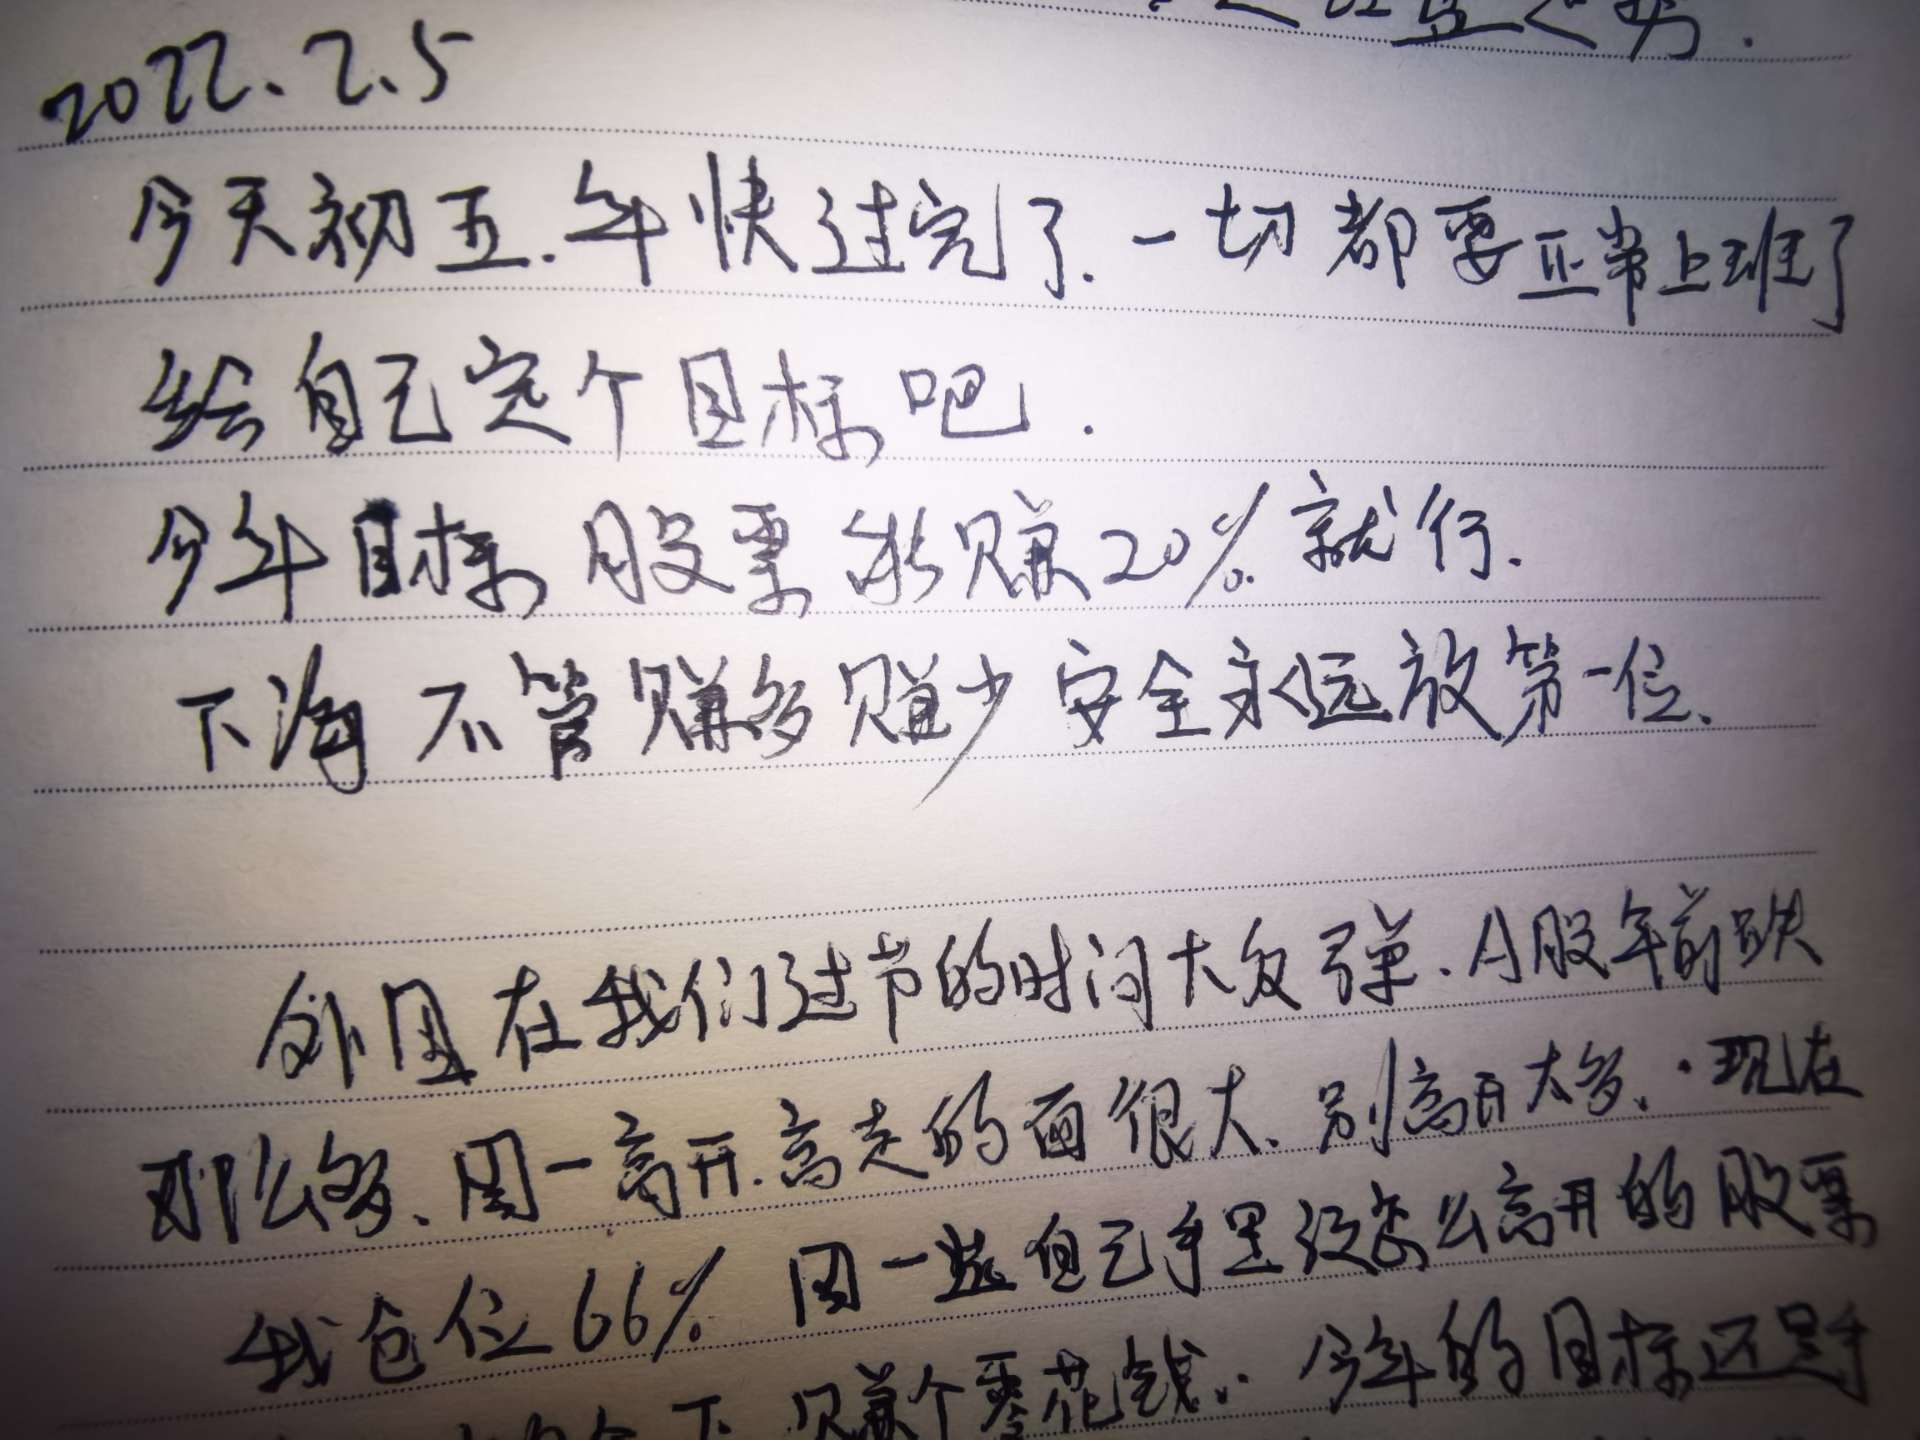 2022.2.5
今天初五.年快过完了.一切都要正常上班了
给自己定个目标吧.
今年目标 股票能赚20%.就行.
下海 不管赚多赚少 安全永远放第一位.
外围在我们过节的时间大反弹.A股年前跌
那么多.周一高开.高走的面很大.别高开太多.现在
我仓位66%. 周一 自己手里没怎么高开的股票
下 赚个零花钱.. 今年的目标还是